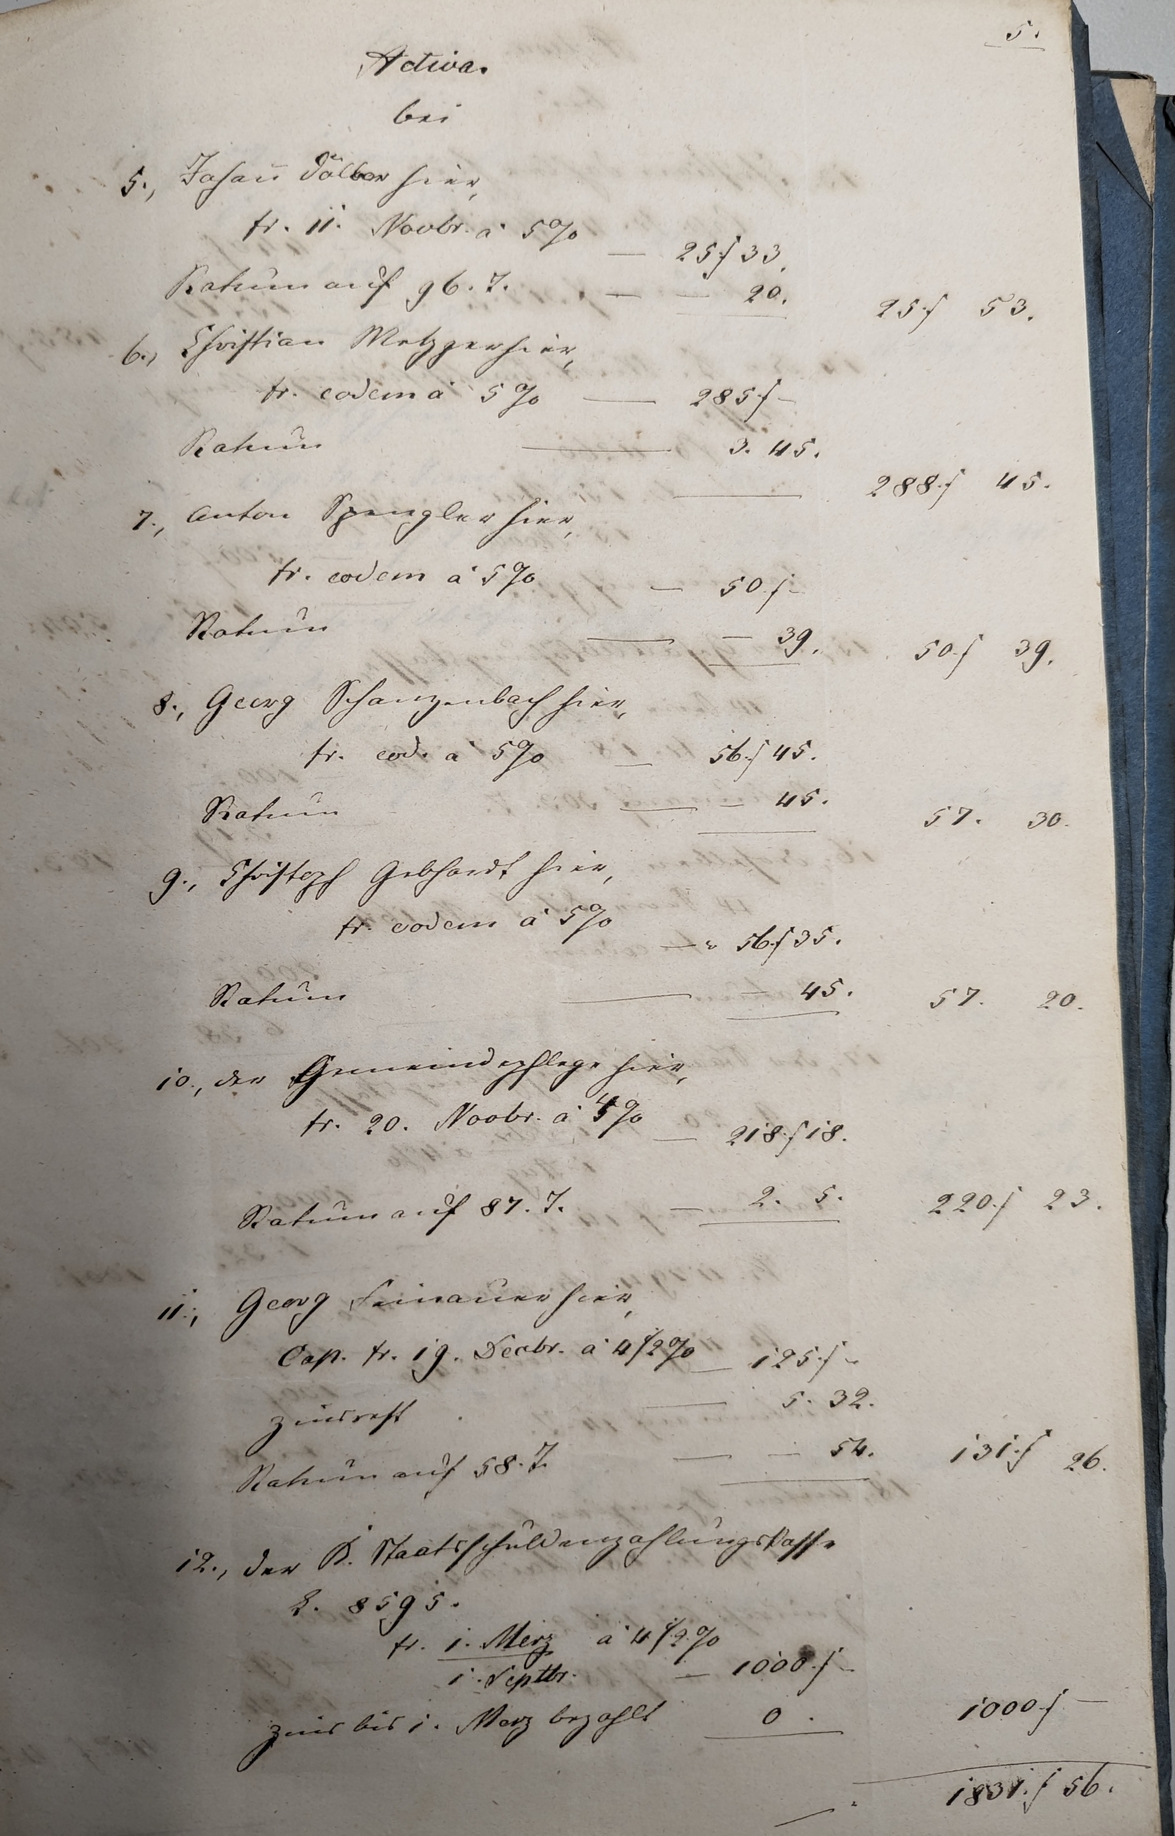 5.
Activa.
bei
5., Johañ Dölber hier,
tr. 11. Novbr. à 5% — 25 f 33.
Ratum auf 96. T. — — 20. 25 f 53.
6., Christian Metzger hier,
tr. eodem à 5% — 285 f –
Ratum — 3. 45. 288 f 45.
7., Anton Spengler hier,
tr. eodem à 5% — 50 f –
Ratum — — 39. 50 f 39.
8., Georg Schanzenbach hier,
tr. eod. à 5% — 56 f 45.
Ratum — — 45. 57. 30.
9., Christoph Gebhardt hier,
tr. eodem à 5% — 56 f 35.
Ratum — — 45. 57. 20.
10., der Gemeindepflege hier,
tr. 20. Novbr. à 4% — 218 f 18.
Ratum auf 87. T. — 2. 5. 220 f 23.
11., Georg Leinauer hier,
Cap. tr. 19. Decbr. à 4 1/2% — 125 f –
Zinsrest — 5. 32.
Ratum auf 58. T. — — 54. 131 f 26.
12., der K. Staatsschuldenzahlungskasse
L. 8595.
tr. 1. Merz à 4 1/2%
1. Septbr. — 1000 f –
Zins bis 1. Merz bezahlt 0. 1000 f –
1831 f 56.